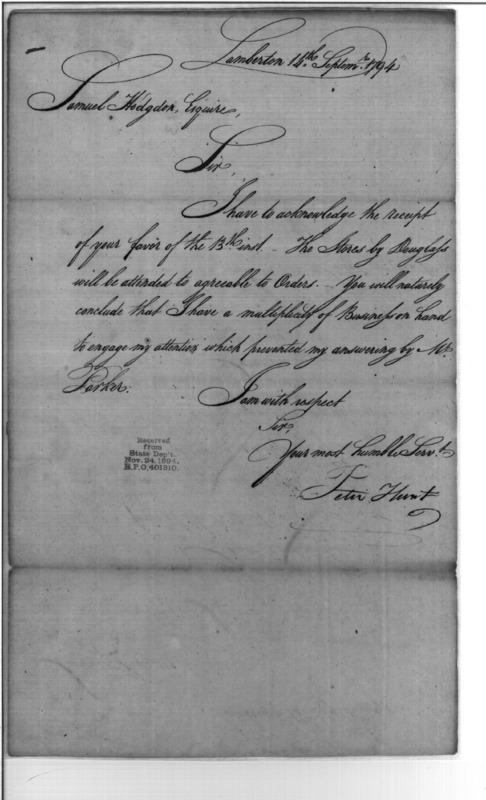 Lamberton 14th. Septemr. 1794
Samuel Hodgdon, Esquire,
Sir,
I have to acknowledge the receipt
of your favor of the 13th. inst. The Stores by Douglass
will be attended to agreeable to Orders. You will naturely
conclude that I have a multiplicity of Business on hand
to engage my attention which prevented my answering by Mr.
Parker.
I am with respect
Sir,
Your most humble Servt.
Peter Hunt
Received
from
State Dep't.
Nov. 24, 1894.
R.P.O, 401910.